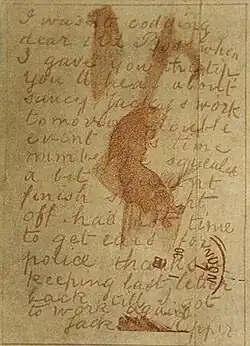 I was not codding
dear old Boss when
I gave you the tip
you'll hear about
saucy Jacky s work
tomorrow double
event this time
number one squealed
a bit couldnt
finish straight
off. had not time
to get ears for
police thanks for
keeping last letter
back till I got
to work again.
Jack the Ripper